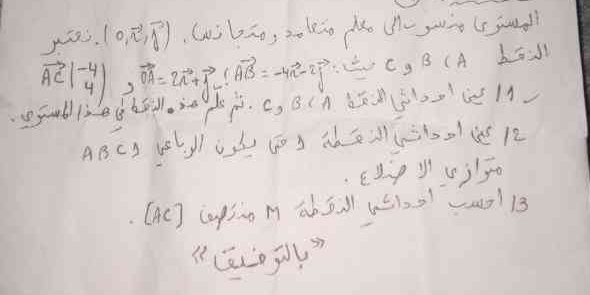 المستوي منسوب الى معلم متعامد ومتجانس. (O,i⃗,j⃗). نعتبر
النقط A، B و C حيث: OA⃗ = 2i⃗+j⃗، AB⃗ = -4i⃗-2j⃗ و AC⃗ (-4 4)
1/ عين احداثيي النقط A، B و C. ثم علم هذه النقط في هذا المستوي.
2/ عين احداثيي النقطة D حتى يكون الرباعي ABCD
متوازي الاضلاع.
3/ احسب احداثيي النقطة M منتصف [AC].
«بالتوفيق»